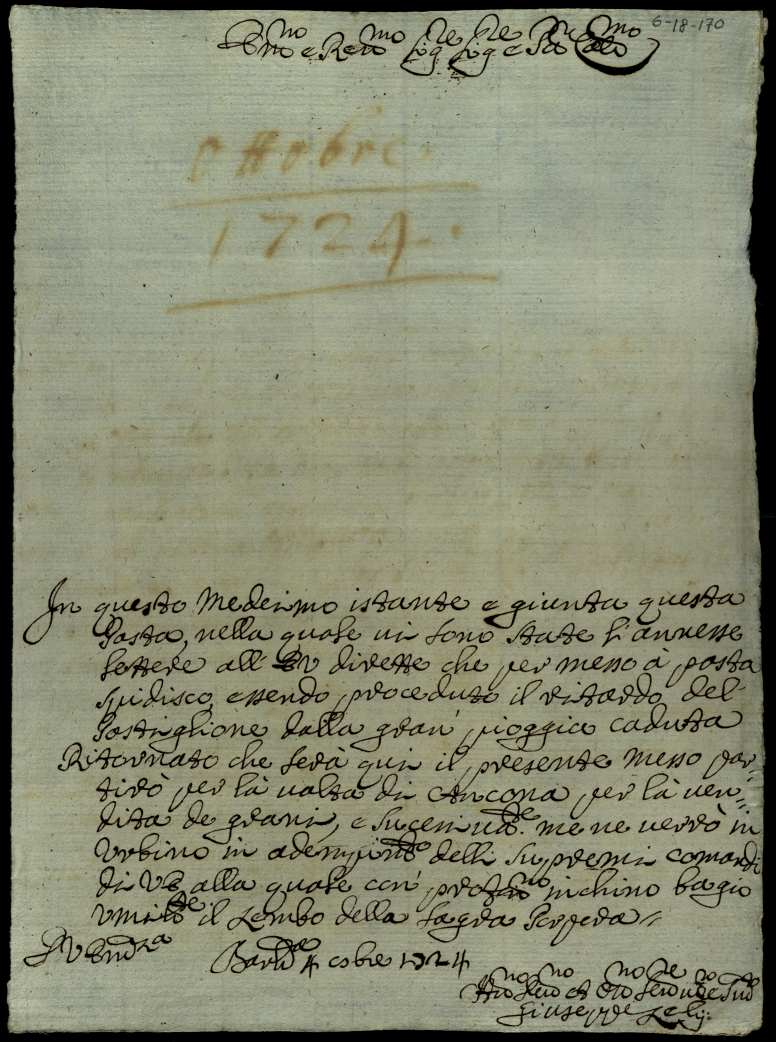 6-18-170
Em.no e Rev.mo Sig.re Sig.re e P.ron Col.mo
Ottobre.
1724.
In questo Medesimo istante e giunta questa
Posta, nella quale vi sono state l'annesse
lettere all' EV dirette che per messo à posta
spidisco, essendo proceduto il ritardo del
Postiglione dalla gran' pioggia caduta
Ritornato che serà qui il presente messo par=
tirò per là volta di Ancona per là ven=
dita de grani, e sucessivam.te me ne verrò in
Urbino in adempim.to delli supremi comandi
di VE alla quale con' prof.mo inchino bagio
umilm.te il Lembo della Sagra Porpora //
D V Em.za
4 8bre 1724
Giuseppe